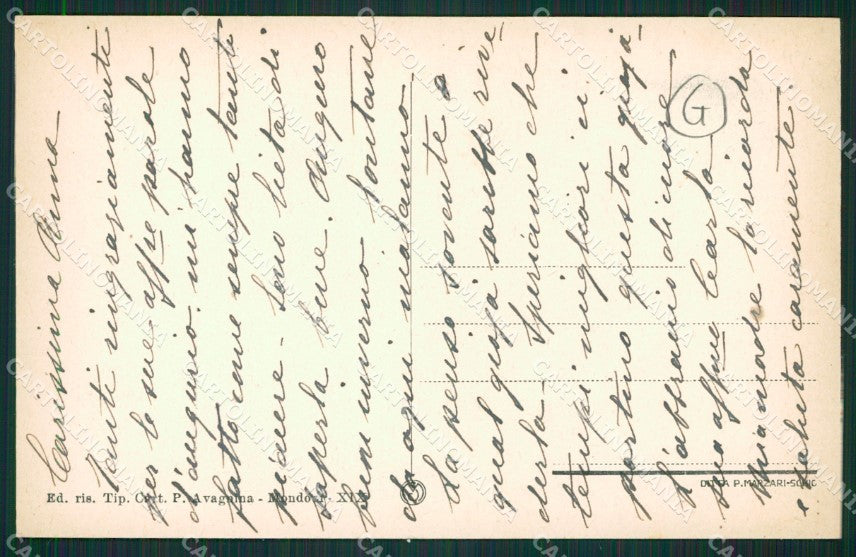 Carissima Anna
Tanti ringraziamenti
per le sue affme parole
d'augurio. mi hanno
fatto come sempre tanto
piacere - Sono lieta di
saperla bene. Auguro
buon inverno lontane
da ogni malanno
La penso sovente e
qual gioja sarebbe rive-
derla. Speriamo che
tempi migliori ci
portino questa gioja
L'abbraccio di cuore
sua affma Carla
Mia madre la ricorda
e saluta caramente.
G
Ed. ris. Tip. Cart. P. Avagnina - Mondovì - XIX
DITTA P. MARZARI-SCHIO
CARTOLINOMANIA